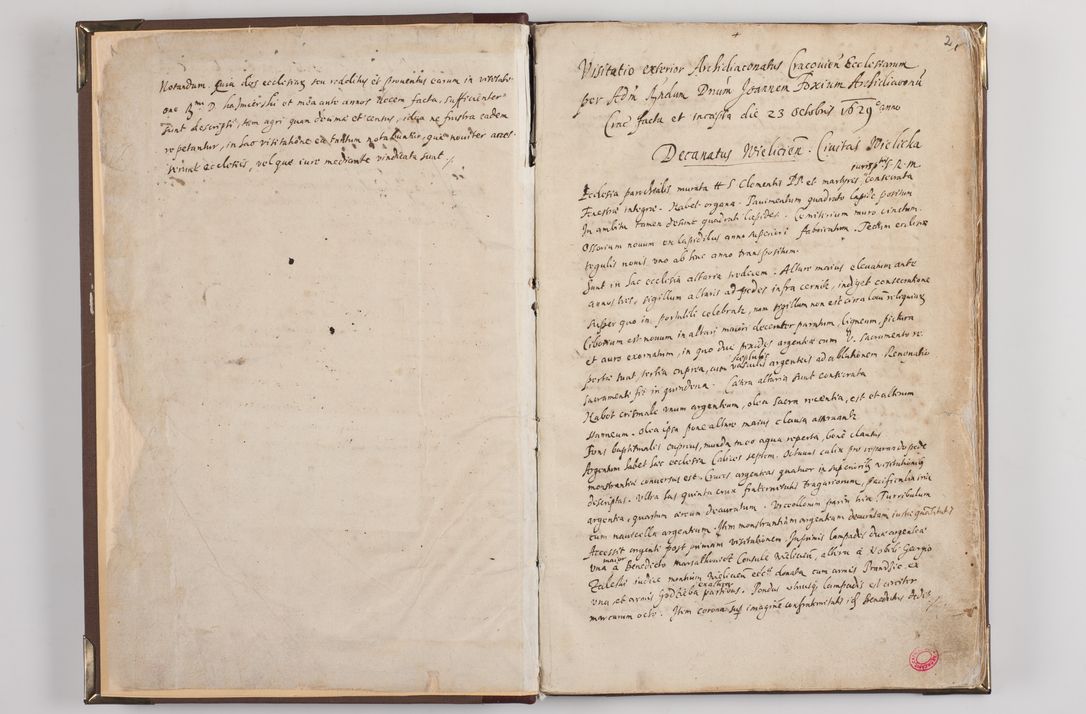 Notandum. Quia dos ecclesiarum seu redditus et prouentus earum in visitati-
one R.mi D. Hazmierski et mea ante annos decem facta, sufficienter
sunt descripti, tam agri quam decimæ et census, ideo ne frustra eadem
repetantur, in hac visitatione ea tantum notabuntur, quæ nouiter acces-
serunt ecclesiis, vel quæ iure mediante vindicata sunt
2
Visitatio exterior Archidiaconatus Cracouien Ecclesiarum
per Adm Rndum Dnum Joannem Foxium Archidiaconu
Crac facta et incæpta die 23 Octobris 1629 anno
Decanatus Wielicien. Ciuitas Wielicka
Ecclesia parochialis murata tt S Clementis PP. et martyris, consecrata
Fenestræ integræ. Habet organa. Pauimentum quadrato lapide positum
In ambitu tamen desunt quadrati lapides. Cemiterium muro cinctum.
Ossorium nouum ex lapidibus anno superiori fabricatum. Tectum ecclesiæ
tegulis nouis, vno ab hinc anno transpositum.
Sunt in hac ecclesia altaria tredicem. Altare maius eleuatum ante
annos tres, sigillum altaris ad pedes infra cernitur, indiget consecratione
super quo in portatili celebratur, nam sigillum non est circa locum reliquiarum
Ciborium est nouum in altari maiori decenter paratum, ligneum, pictura
et auro exornatum, in quo duæ pixides argenteæ cum V. Sacramento re-
pertæ sunt, tertia cuprea, cum vasculis argenteis ad ablutionem Renouatio
sacramenti fit in quindena. Cætera altaria sunt consecrata
Habet crismale vnum argenteum, olea sacra recentia, est et alterum
stanneum. Olea ipsa pone altare maius clausa asseruantur
Fons baptismalis cupreus, munda in eo aqua reperta, bene clausus
Argentum habet hæc ecclesia Calices septem. Octauus calix pro reparando pede
monstrantiæ conuersus est. Cruces argenteas quatuor in superioribus visitationibus
descriptas. Vltra has quinta crux fraternitatis tragariorum, pacificalia tria
argentea, quartum æreum deauratum. Vrceollorum paria tria Turribulum
cum nauicella argenteum. Item monstrantiam argenteam deauratam
Accessit argenti post primam visitationem. Inprimis lampades duæ argenteæ
vna maior à Benedicto Consule Wieliciensi, altera à Nobili Georgio
Zaleski iudice montium Wieliciens eccliæ donata cum armis ex
vna et armis Godzieba ex altera partibus. Pondus vtriusque lampadis est circiter
marcarum octo. Item corona super imaginem confraternitatis id Benedictus dedit